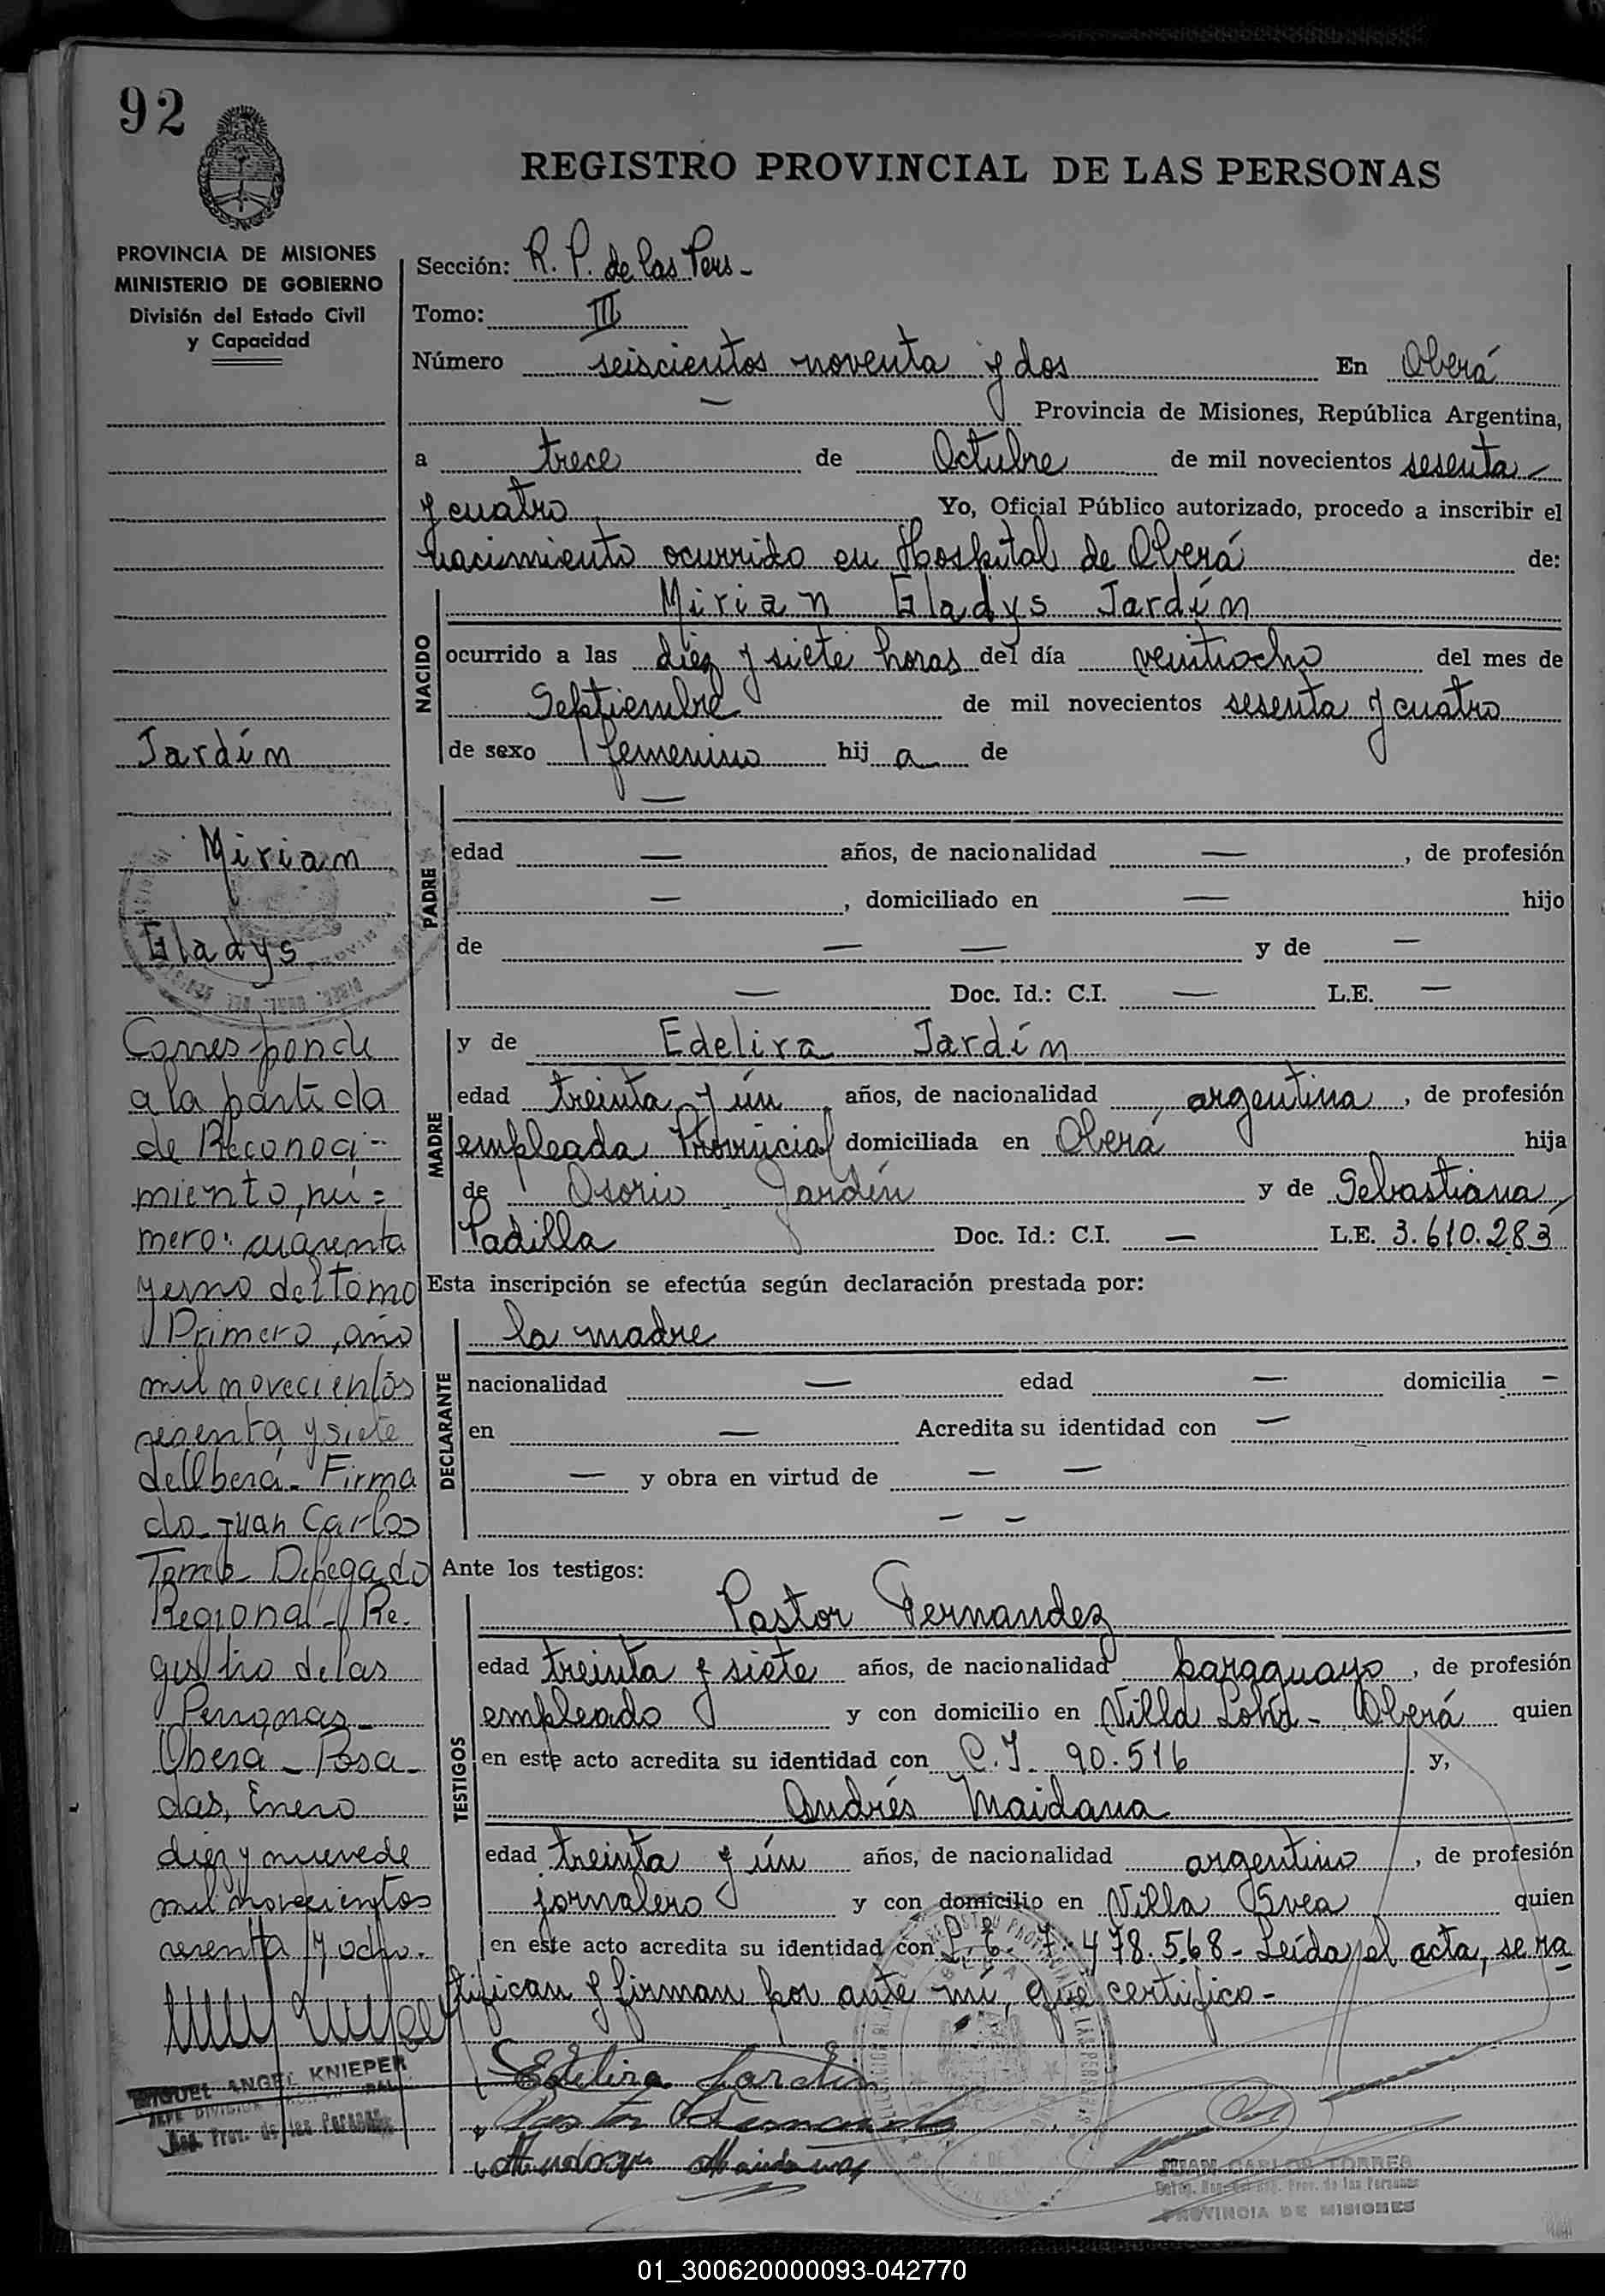 92
REGISTRO PROVINCIAL DE LAS PERSONAS
PROVINCIA DE MISIONES
MINISTERIO DE GOBIERNO
División del Estado Civil
y Capacidad
Jardín
Miriam
Gladys
Corresponde
a la partida
de Reconoci-
miento, nú=
mero: cuarenta
y uno del tomo
Primero, año
mil novecientos
sesenta y siete
de Oberá - Firma
do - Juan Carlos
Torres Delegado
Regional - Re-
gistro de las
Personas -
Oberá - Posa-
das, Enero
diez y nueve de
mil novecientos
sesenta y ocho.
MIGUEL ANGEL KNIEPER
JEFE DIVISION
Reg. Prov. de las Personas
Sección: R. P. de las Pers -
Tomo: III
Número seiscientos noventa y dos En Oberá
— Provincia de Misiones, República Argentina,
a trece de Octubre de mil novecientos sesenta
y cuatro Yo, Oficial Público autorizado, procedo a inscribir el
nacimiento ocurrido en Hospital de Oberá de:
NACIDO
Mirian Gladys Jardín
ocurrido a las diez y siete horas del día veintiocho del mes de
Septiembre de mil novecientos sesenta y cuatro
de sexo femenino hij a de
PADRE
—
edad — años, de nacionalidad — , de profesión
— , domiciliado en — hijo
de — — y de —
— Doc. Id.: C.I. — L.E. —
MADRE
y de Edelira Jardín
edad treinta y ún años, de nacionalidad argentina , de profesión
empleada Provincial domiciliada en Oberá hija
de Osorio Jardín y de Sebastiana
Padilla Doc. Id.: C.I. — L.E. 3.610.283
Esta inscripción se efectúa según declaración prestada por:
DECLARANTE
la madre
nacionalidad — edad — domicilia —
en — Acredita su identidad con —
— y obra en virtud de — —
— —
Ante los testigos:
TESTIGOS
Pastor Fernandez
edad treinta y siete años, de nacionalidad paraguayo , de profesión
empleado y con domicilio en Villa - Oberá quien
en este acto acredita su identidad con C.I. 90.516 y,
Andrés Maidana
edad treinta y ún años, de nacionalidad argentino , de profesión
jornalero y con domicilio en Villa Svea quien
en este acto acredita su identidad con L.E. 7.478.568 - Leída el acta, se ra
tifican y firman por ante mí, que certifico -
Edelira Jardin
Pastor Fernandez
Maidana
JUAN CARLOS TORRES
PROVINCIA DE MISIONES
01_300620000093-042770